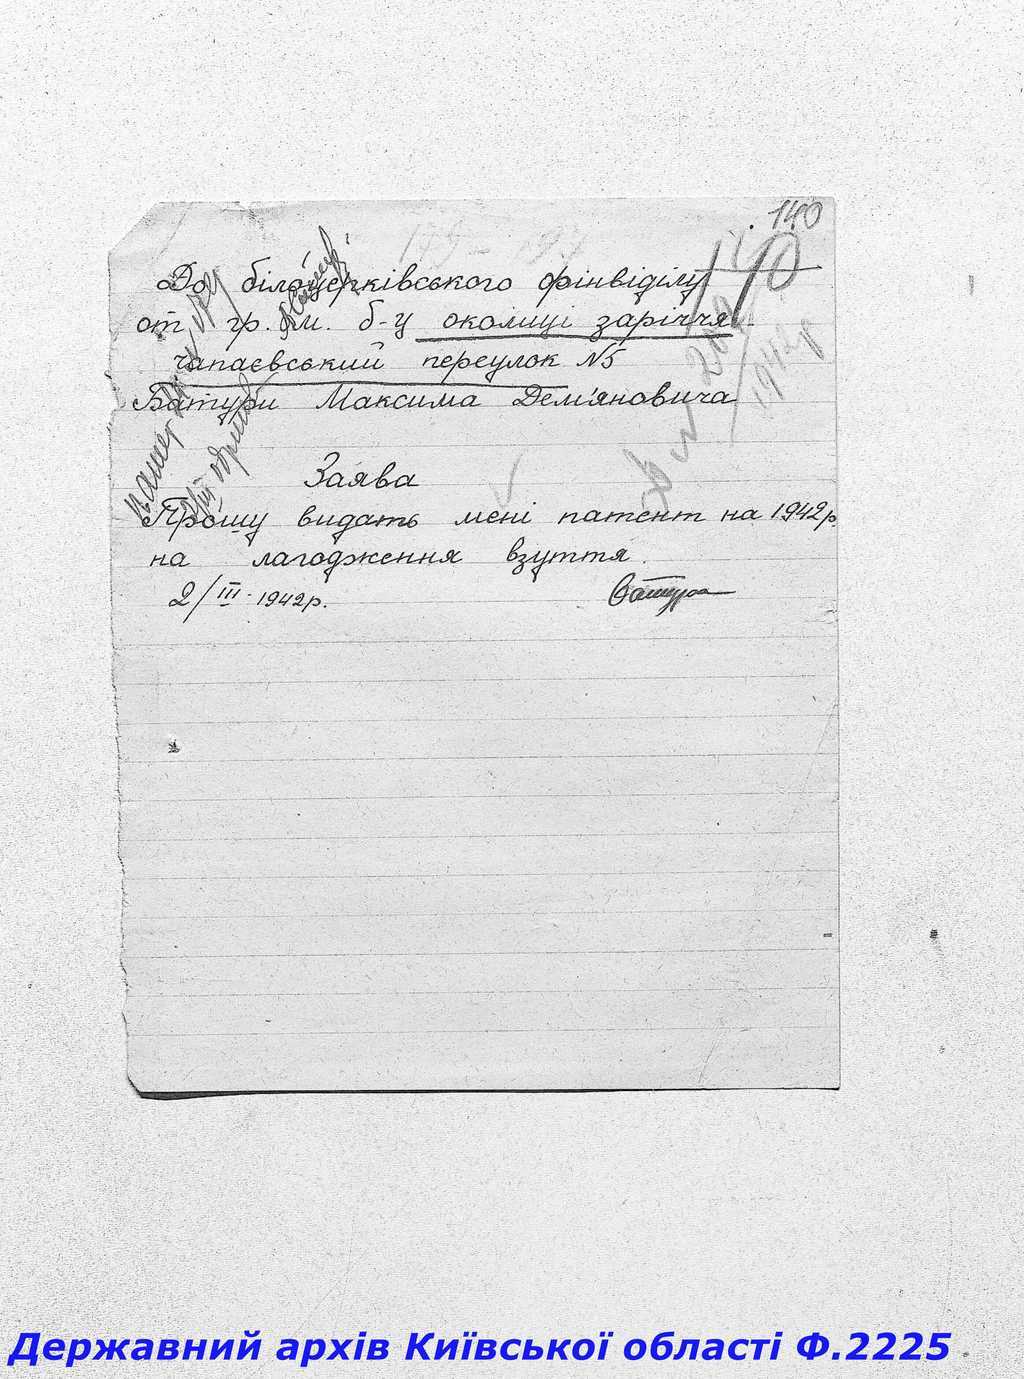 140
140
До білоцерківського фінвіділу
от гр. м. б-ц околиці заріччя
чапаєвський переулок №5
Батури Максима Дем'яновича
1942р
Заява
Прошу видать мені патент на 1942р.
на лагодження взуття.
2/III-1942р.
Батура
Державний архів Київської області Ф.2225